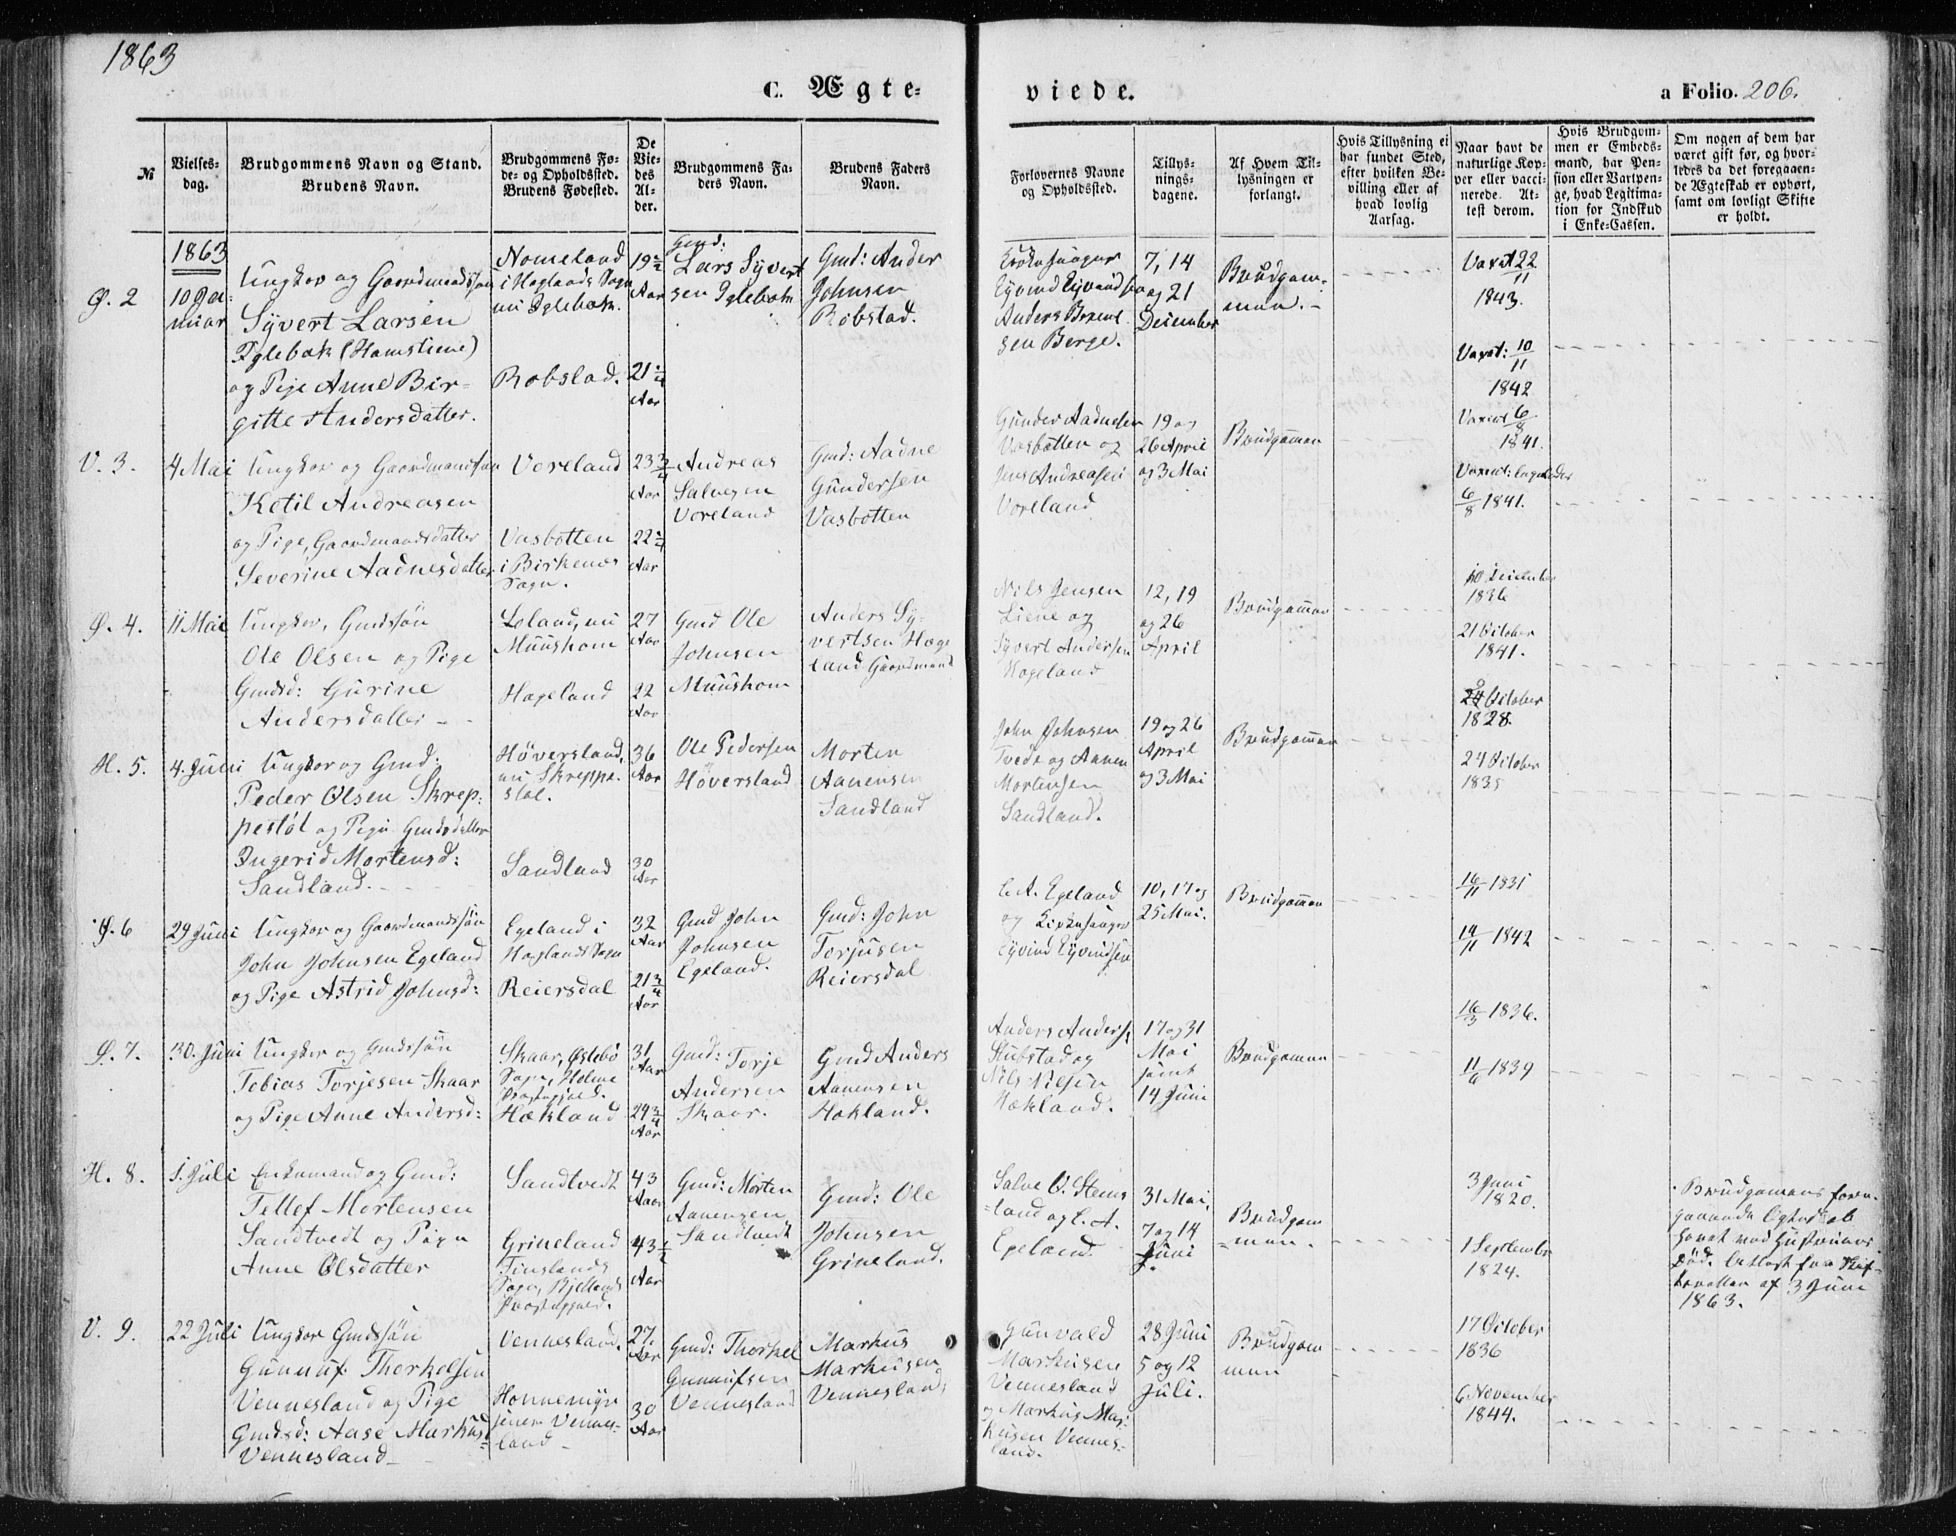 1863
C. Ægte-
viede.
a Folio. 206.
№
Vielses-
dag.
Brudgommens Navn og Stand.
Brudens Navn.
Brudgommens Fø-
de- og Opholdssted.
Brudens Fødested.
De
Vie-
des
Al-
der.
Brudgommens Fa-
ders Navn.
Brudens Faders
Navn.
Forlovernes Navne
og Opholdssted.
Tillys-
nings-
dagene.
Af Hvem Til-
lysningen er
forlangt.
Hvis Tillysning ei
har fundet Sted,
efter hvilken Be-
villing eller af
hvad lovlig
Aarsag.
Naar havt de
naturlige Kop-
per eller vacci-
nerede. At-
test derom.
Hvis Brudgom-
men er Embeds-
mand, har Pen-
sion eller Vartpen-
ge, hvad Legitima-
tion for Indskud
i Enke-Cassen.
Om nogen af dem har
været gift før, og hvor-
ledes da det foregaaen-
de Ægteskab er ophørt,
samt om lovligt Skifte
er holdt.
1863
Ø. 2
10 Ja-
nuar
Ungkar og Gaardmandssøn
Syvert Larsen
Iglebæk (Hamstiene)
og Pige Anne Bir-
gitte Andersdatter.
Homeland
i Hæglands Sogn
nu Iglebæk.
Robstad.
19 2/4
Aar
21 1/4
Aar
Gmd:
Lars Syvert
sen Iglebæk
Gmd: Ander
Johnsen
Robstad.
Kirkesanger
Eyvind Eyvindsen
Anders Bernt
sen Berge.
7, 14
og 21
December
Brudgom-
men.
Vaxct 22/11
1843.
Vaxct: 10/11
1842
V. 3.
4 Mai
Ungkar og Gaardmandssøn
Ketil Andreasen
og Pige, Gaardmandsdatter
Severine Aadnesdatter
Voreland
Vasbotten
i Birkenes
Sogn.
23 3/4
Aar
22 1/4
Aar
Andreas
Salvesen
Voreland
Gmd: Aadne
Gundersen
Vasbotten
Gunder Aadnesen
Vasbotten og
Jens Andreasen
Voreland
19 og
26 April
og 3 Mai
Brudgommen
Vaxct 6/8
1841.
Vaxct:
6/8 1841.
Ø. 4.
11 Mai
Ungkar, Gmdssøn
Ole Olsen og Pige
Gmdsd: Gurine
Andersdatter
Loland, nu
Muushom
Hægeland
27
Aar
22
Aar
Gmd Ole
Johnsen
Muushom
Anders Sy-
vertsen Hæge
land Gaardmand
Nils Jensen
Liene og
Syvert Andersen
Hægeland
12, 19
og 26
April
Brudgommen
10 December
1836
21 October
1841.
H. 5.
4. Juni
Ungkar og Gmd:
Peder Olsen Skrep-
pestøl og Pige Gmdsdatter
Ingerid Mortensd:
Sandland.
Høversland,
nu Skreppe-
støl.
Sandland
36
Aar
30
Aar
Ole Pedersen
Høversland
Morten
Aanensen
Sandland
John Johnsen
Tvedt og Aanen
Mortensen
Sandland.
19 og 26
April
og 3 Mai
Brudgommen
October
1828.
24 October
1835
Ø. 6
29 Juni
Ungkar og Gaardmandssøn
John Johnsen Egeland
og Pige Astrid Johnsd:
Egeland i
Hæglands Sogn
Reiersdal
32
Aar
21 3/4
Aar
Gmd John
Johnsen
Egeland.
Gmd: John
Torjusen
Reiersdal
C. A. Egeland
og Kirkesanger
Eyvind Eyvindsen
10, 17 og
25 Mai.
Brudgommen
16/11 1831
14/11 1842
Ø. 7.
30. Juni
Ungkar og Gmdssøn
Tobias Torjesen Skaar
og Pige Anne Andersd:
Skaar, Øslebø
Sogn, Holme
Præstegjæld.
Hækland
31
Aar
24 3/4
Aar
Gmd: Torje
Andersen
Skaar.
Gmd Anders
Aanensen
Hækland.
Anders Anders.
Stubstad og
Nils Nilsen
Hækland.
17 og 31
Mai
samt
14 Juni
Brudgommen
16/3 1836.
11/6 1839
H. 8.
1. Juli
Enkemand og Gmd:
Tellef Mortensen
Sandtvedt og Pige
Anne Olsdatter
Sandtvedt
Grineland
Finslands
Sogn, Bjellands
Præstegjæld.
43
Aar
43 1/2
Aar
Gmd: Morten
Aanensen
Sandtvedt
Gmd: Ole
Johnsen
Grineland.
Salve O. Stems
=land og C. A.
Egeland.
31 Mai,
7 og 14
Juni
Brudgom
=men.
3 Juni
1820.
1 September
1824.
Brudgommens fore-
gaaende Ægteskab
hævet ved Hustruens
Død. Attest fra Skif-
teretten af 3 Juni
1863.
V. 9.
22 Juli
Ungkar Gmdssøn
Gunnuf Thorkelsen
Vennesland og Pige
Gmdsd: Aase Markusd=
Vennesland
Vennesland.
Honnemyr
under Vennes-
land
27.
Aar
30
Aar
Gmd: Thorkel
Gunnufsen
Vennesland
Markus
Markusen
Vennesland
Gunvald
Markusen
Vennesland
og Markus Mar-
kusen Vennes-
land.
28 Juni
5 og 12
Juli.
Brudgom
men
17 October
1836
6 November
1844.